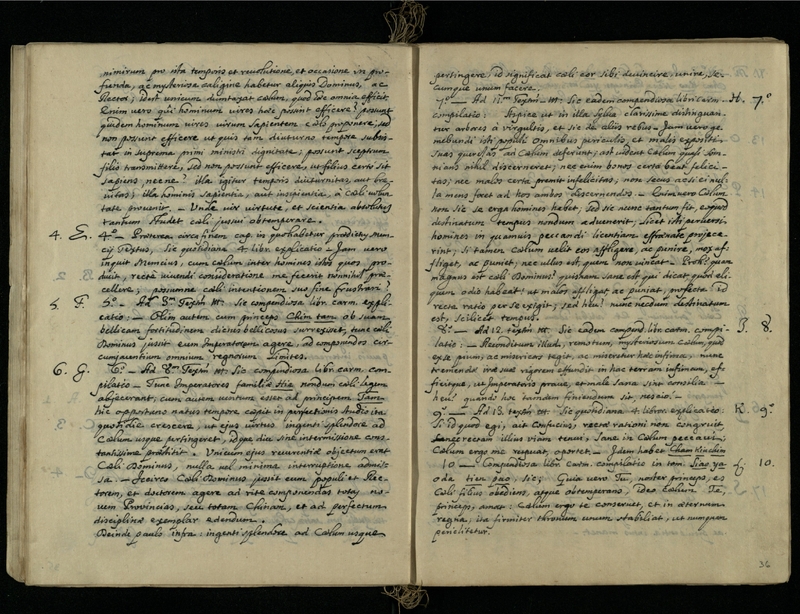 nimirum pro ista temporis et revolutione, et occasione in pro-
funda, ac mysteriosa caligine habetur aliquis Dominus, ac
Rector; idest unicum dumtaxat cælum, quod hoc omnia efficit.
Enim vero qui hominum vires hoc possint efficere? possunt
quidem hominum vires virum sapientem cælo proponere; sed
non possunt efficere ut quis tam diuturno tempore subsis-
tat in suprema primi ministri dignitate; possunt sceptrum
filio transmittere, sed non possunt efficere, ut filius certo sit
sapiens, nec ne? illa igitur temporis diuturnitas, aut bre-
vitas; illa hominis sapientia, aut insipientia, à cæli volun-
tate provenit. — Unde vir virtute et scientia absolutus
tantum studet cæli jussui obtemperare.
4. E. 4.º — Præterea circa finem cap. in quo habetur prædictus Mem-
cii Textus, Sic quotidiana 4. libr. explicatio — Jam vero
inquit Memcius, cum cælum inter homines istos quos pro-
duxit, rectè vivendi consideratione me fecerit nonnihil præ-
cellere; possumne cæli intentionem suo fine frustrari?
5. F. 5.º — Ad 8.m Textum III: Sic compendiosa libr. carm. expli-
catio: — Olim autem cum princeps Chim tam ob suam
bellicam fortitudinem dictus bellicosus surrexisset, tunc cæli
Dominus jussit eum Imperatorem agere, ad componendos cir-
cumquentium omnium regnorum limites.
6. G. 6.º — Ad 9.m Textum III: Sic compendiosa libr. carm. com-
pilatio — Tunc Imperatores familiæ Hia nondum cæli legem
abjecerant, cum autem ventum esset ad principem Tam
hic opportunè natus tempore cœpit in perfectionis studio ita
quotidie crescere, ut ejus virtus ingenti splendore ad
Cælum usque pertingeret, idque diu sine intermissione cons-
tantissimè præstitit. Unicum ejus reverentiæ objectum erat
Cæli Dominus, nulla vel minima interruptione admis-
sa. — Idcirco Cæli Dominus jussit eum populi et Rec-
torem, et doctorem agere ad ritè componendas totas no-
vem Provincias, seu totam Chinam, et ad perfectum
disciplinæ exemplar edendum.
Deinde paulò infra: ingenti splendore ad Cælum usque
pertingere, id significat cæli cor sibi devincire, unire, se-
cumque unum facere.
H. 7.º 7.º — Ad 11.m Textum III: Sic eadem compendiosa libr. carm.
compilatio: Aspice ut in illa sylva clarissimè distinguan-
tur arbores à virgultis, et sic de aliis rebus — Jam vero ge-
mebundi isti populi omnibus periculis, et malis expositi
suas querelas ad Cælum deferunt; ast vocant Cælum quasi som-
nians nihil discerneret; nec enim bonos certò beat felici-
tas; nec malos certò premit infelicitas, non secus ac si cæles-
la mens foret ad hos ambos discernendos. — Quia vero Cælum
non sic se erga homines habet, sed sic nunc tantum fit, eo quod
destinatum tempus nondum advenerit. Licet isti perversi
homines in quamvis peccandi licentiam effrænatè projece-
rint; si tamen Cælum velit eos affligere, ac punire, mox af-
fliget, ac puniet, nec ullus est, quem non vincat. Proh! quam
magnus est cæli Dominus! quisnam sane est, qui dicat quod ali-
quem odio habeat? ut malos affligat, ac puniat, profecto id
recta ratio per se exigit; sed heu! nunc necdum destinatum
est, scilicet tempus.
I. 8. 8.º — Ad 12. textum III. Sic eadem compend. libr. carm. compi-
latio: — Reconditum illud, remotum, mysteriosum Cælum, quod
ex se pium, ac misericors tegit, ac miseretur hæc infima, nunc
tremenda iræ suæ rigorem effundit in hac terram infimam, ef-
ficitque, ut Imperatoris prava, et malè sana sint consilia. —
heu! quando hoc tandem finiendum sit, nescio.
K. 9.º 9.º — Ad 13. textum III. Sic quotidiana 4. libror. explicatio:
Si id quod egi, ait Confucius, rectæ rationi non congruit,
rectam illius viam tenui, Sane in Cælum peccavi,
Cælum ergo me respuat, oportet — Idem habet Cham kiu chim
L. 10. 10 — Compendiosa libr. carm. compilatio in tom. Siao ya
oda tien pao, sic: Quia vero Tu, noster princeps, es
Cæli filius obediens, atque obtemperans, ideo Cælum Te,
princeps, amat: Cælum ergo te conservet, et in æternum
regna, ita firmiter thronum unum stabiliat, ut nunquam
periclitetur.
36